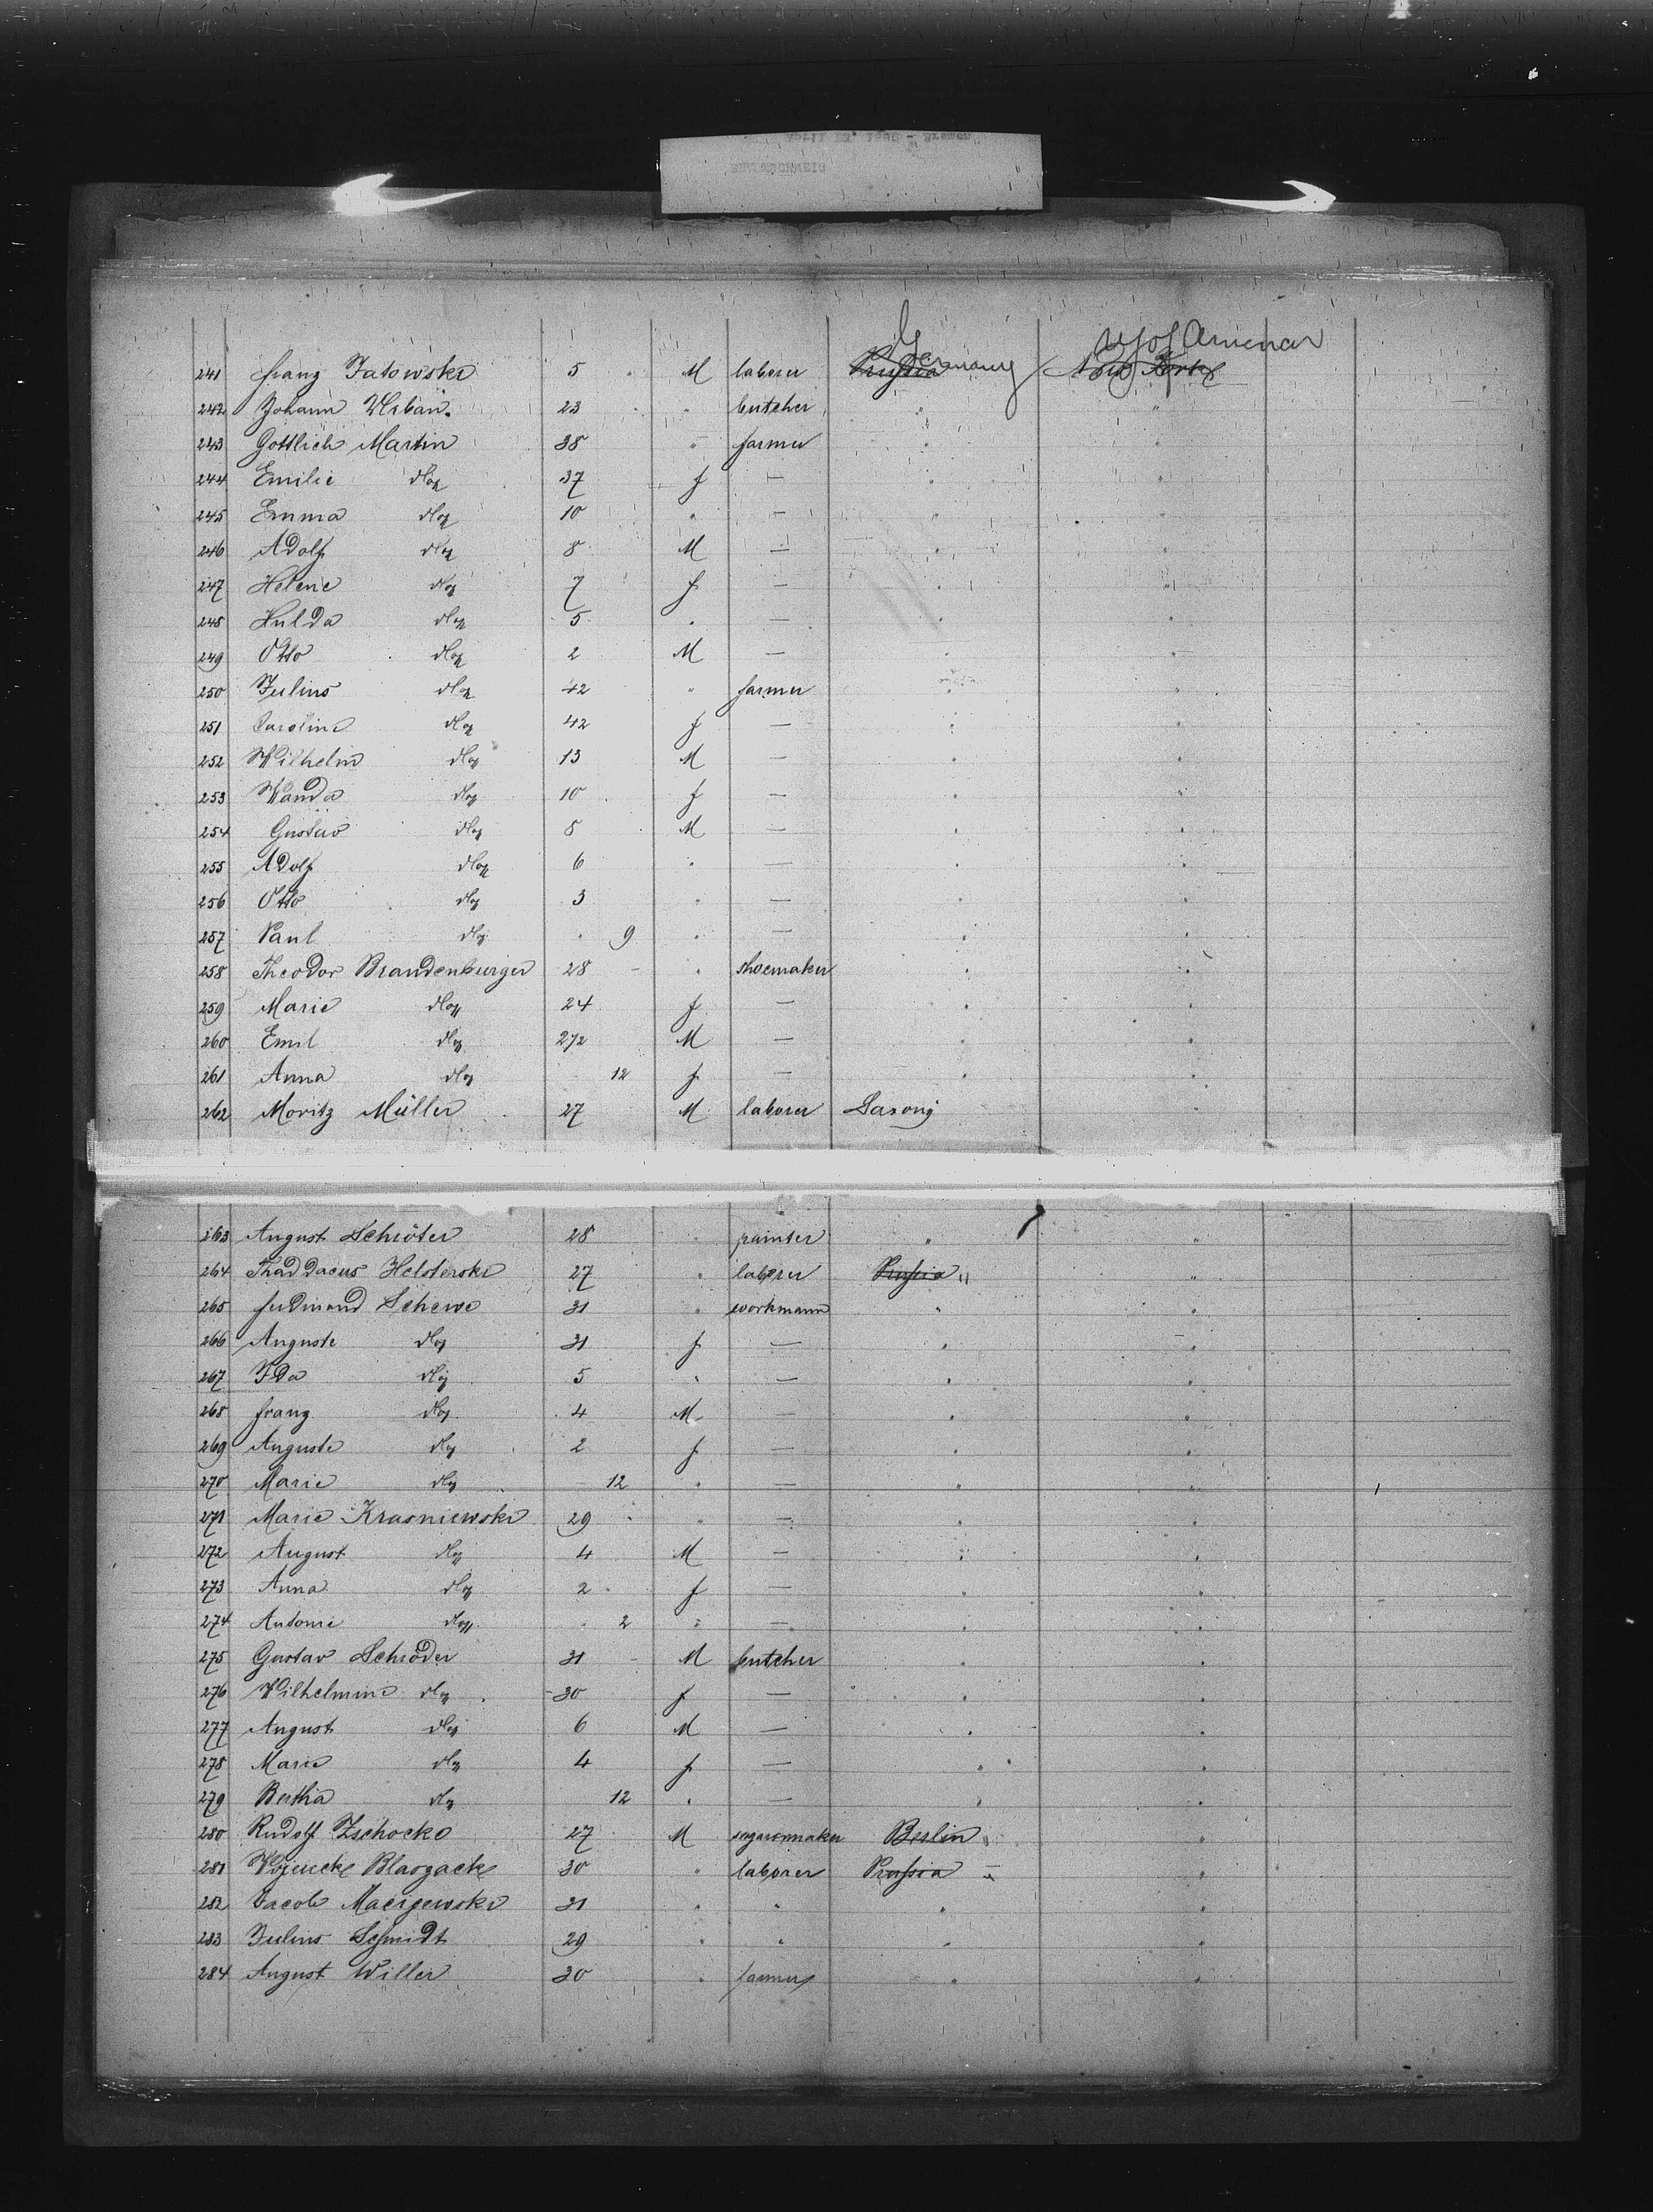 April 22 1880 - Bremen
BRAUNSCHWEIG
Germany U S of America
241 Franz Jatowski 5 M laborer Prussia New York
242 Johann Urban. 23 " butcher " "
243 Gottlieb Martin 38 " farmer " "
244 Emilie do 37 f — " "
245 Emma do 10 " — " "
246 Adolf do 8 M — " "
247 Helene do 7 f — " "
248 Hulda do 5 " — " "
249 Otto do 2 M — " "
250 Julius do 42 " farmer " "
251 Caroline do 42 f — " "
252 Wilhelm do 13 M — " "
253 Wanda do 10 f — " "
254 Gustav do 8 M — " "
255 Adolf do 6 " — " "
256 Otto do 3 " — " "
257 Paul do " 9 " — " "
258 Theodor Brandenburger 28 - " shoemaker " "
259 Marie do 24 f — " "
260 Emil do 2 1/2 M — " "
261 Anna do 12 f — " "
262 Moritz Müller 27 M laborer Saxony "
263 August Schröter 28 " painter " "
264 Thaddaeus Helsterski 27 " laborer Prussia " "
265 Ferdinand Schewe 31 " workmann " "
266 Auguste do 31 f — " "
267 Ida do 5 " — " "
268 Franz do 4 M — " "
269 Auguste do 2 f — " "
270 Marie do - 12 " — " "
271 Marie Krasniewski 29 " — " "
272 August do 4 M — " "
273 Anna do 2 f — " "
274 Antonie do " 2 " — " "
275 Gustav Schröder 31 - M butcher " "
276 Wilhelmine do 30 f — " "
277 August do 6 M — " "
278 Marie do 4 f — " "
279 Bertha do 12 " — " "
280 Rudolf Zschocke 27 M segarenmaker Berlin " "
281 Blaszacke 30 " laborer Prussia " "
282 Jacob Maciejewski 31 " " " "
283 Julius Schmidt 29 " " " "
284 August Willer 30 " farmer " "